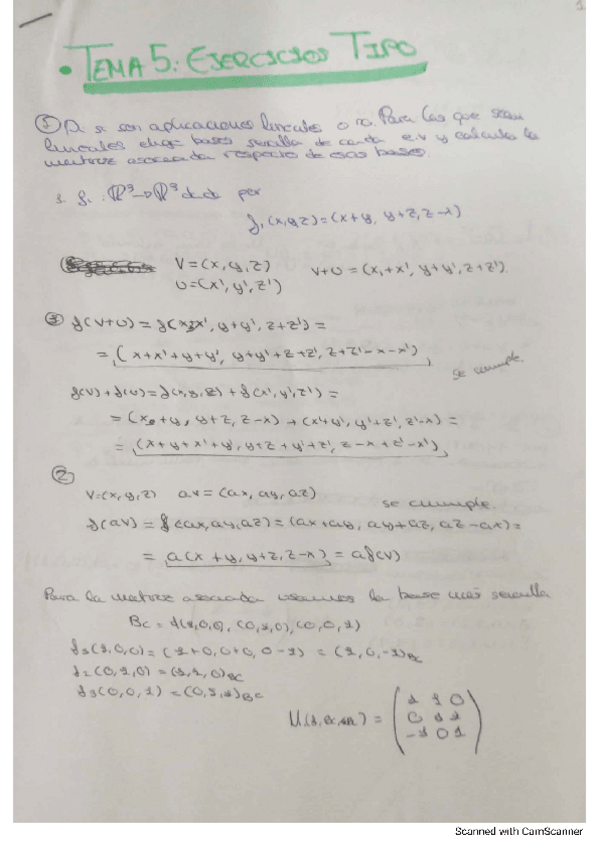 1
• TEMA 5: EJERCICIOS TIPO
① Di si son aplicaciones lineales o no. Para las que sean
lineales elige bases sencilla de cada e.v y calcula la
matriz asociada respecto de esas bases.
1. f₁: ℝ³→ℝ³ dada por
f₁(x,y,z)=(x+y, y+z, z-x)
V=(x,y,z) V+U=(x+x', y+y', z+z').
U=(x',y',z')
① f(V+U)=f(x+x', y+y', z+z')=
=(x+x'+y+y', y+y'+z+z', z+z'-x-x')
se cumple.
f(V)+f(U)=f(x,y,z)+f(x',y',z')=
=(x+y, y+z, z-x)+(x'+y', y'+z', z'-x')=
=(x+y+x'+y', y+z+y'+z', z-x+z'-x')
②
V=(x,y,z) av=(ax,ay,az)
se cumple.
f(av)=f(ax,ay,az)=(ax+ay, ay+az, az-ax)=
=a(x+y,y+z,z-x)=af(v)
Para la matriz asociada usamos la base más sencilla
Bc={(1,0,0),(0,1,0),(0,0,1)
f₁(1,0,0)=(1+0,0+0,0-1)=(1,0,-1)BC
f₂(0,1,0)=(1,1,0)BC
f₃(0,0,1)=(0,1,1)BC
1 1 0
M(f,Bc,Bc)= 0 1 1
-1 0 1
Scanned with CamScanner